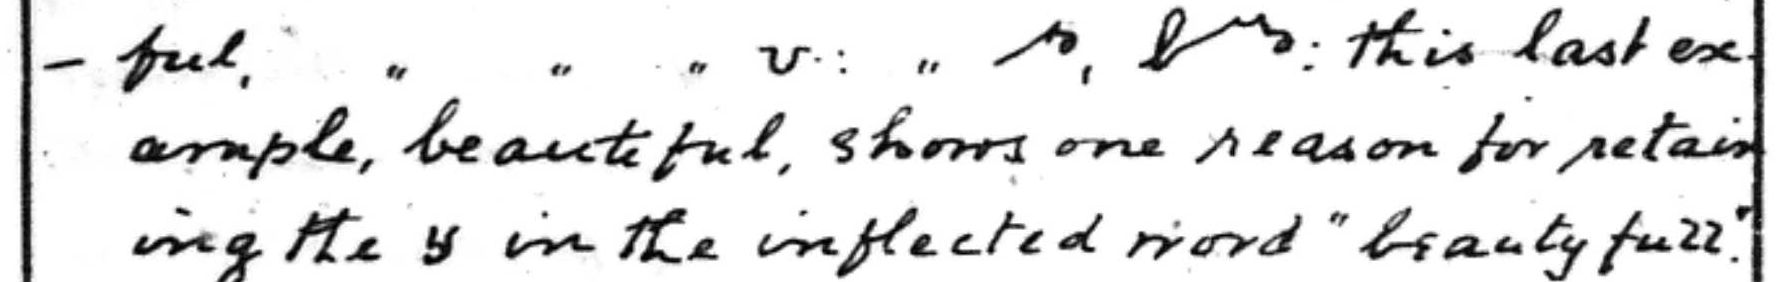 - ful, " " " v: " , : this last ex-
ample, beauteful, shows one reason for retain
ing the y in the inflected word "beautyfull".